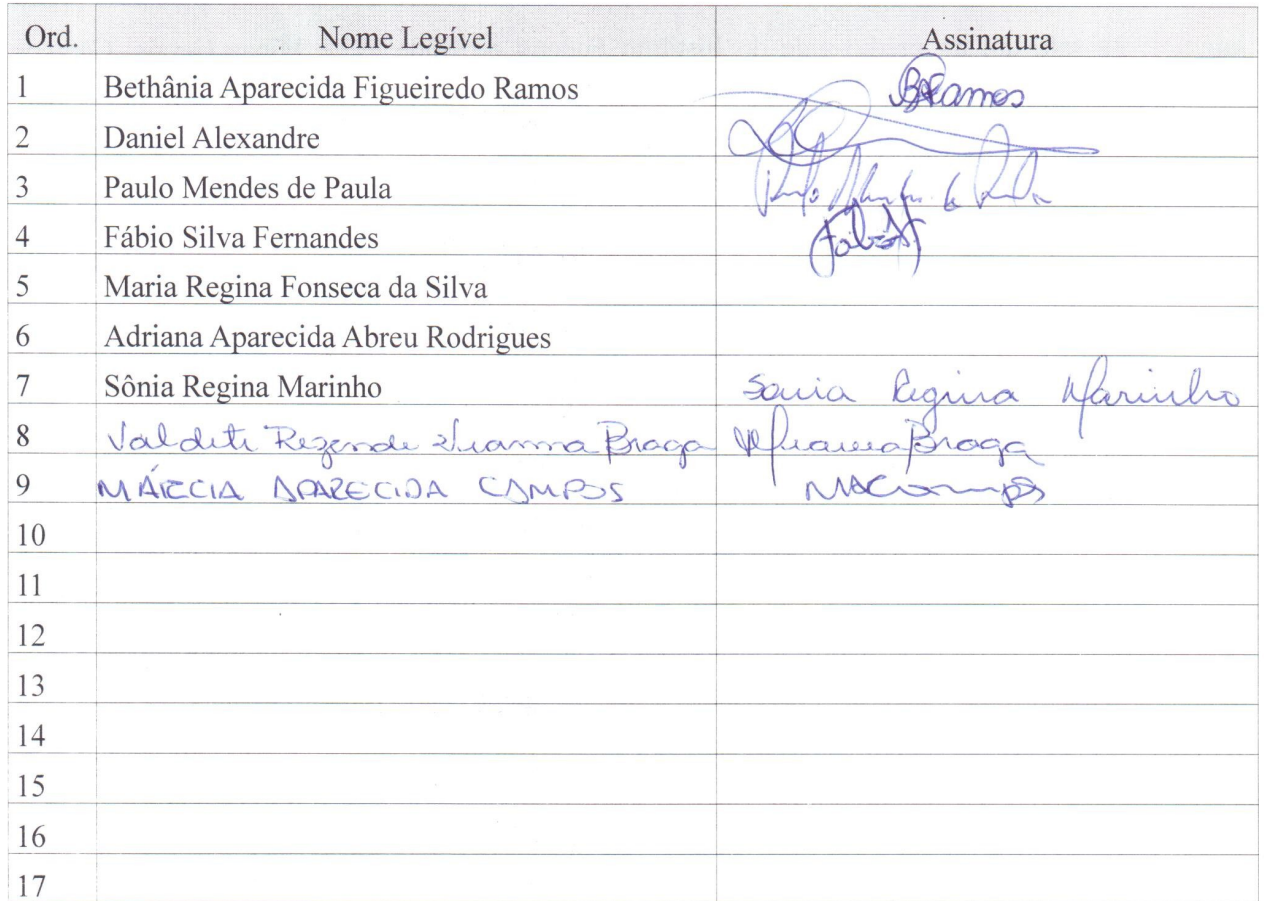 Ord. Nome Legível Assinatura
1 Bethânia Aparecida Figueiredo Ramos BARamos
2 Daniel Alexandre
3 Paulo Mendes de Paula Paulo Mendes de Paula
4 Fábio Silva Fernandes
5 Maria Regina Fonseca da Silva
6 Adriana Aparecida Abreu Rodrigues
7 Sônia Regina Marinho Sonia Regina Marinho
8 Rezende Vianna Braga Braga
9 MÁRCIA APARECIDA CAMPOS MACampos
10
11
12
13
14
15
16
17